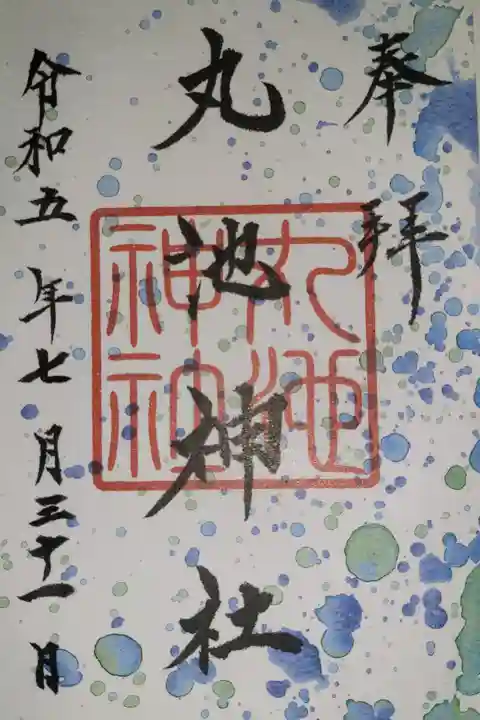 奉拝
丸池神社
丸池
神社
令和五年七月三十一月